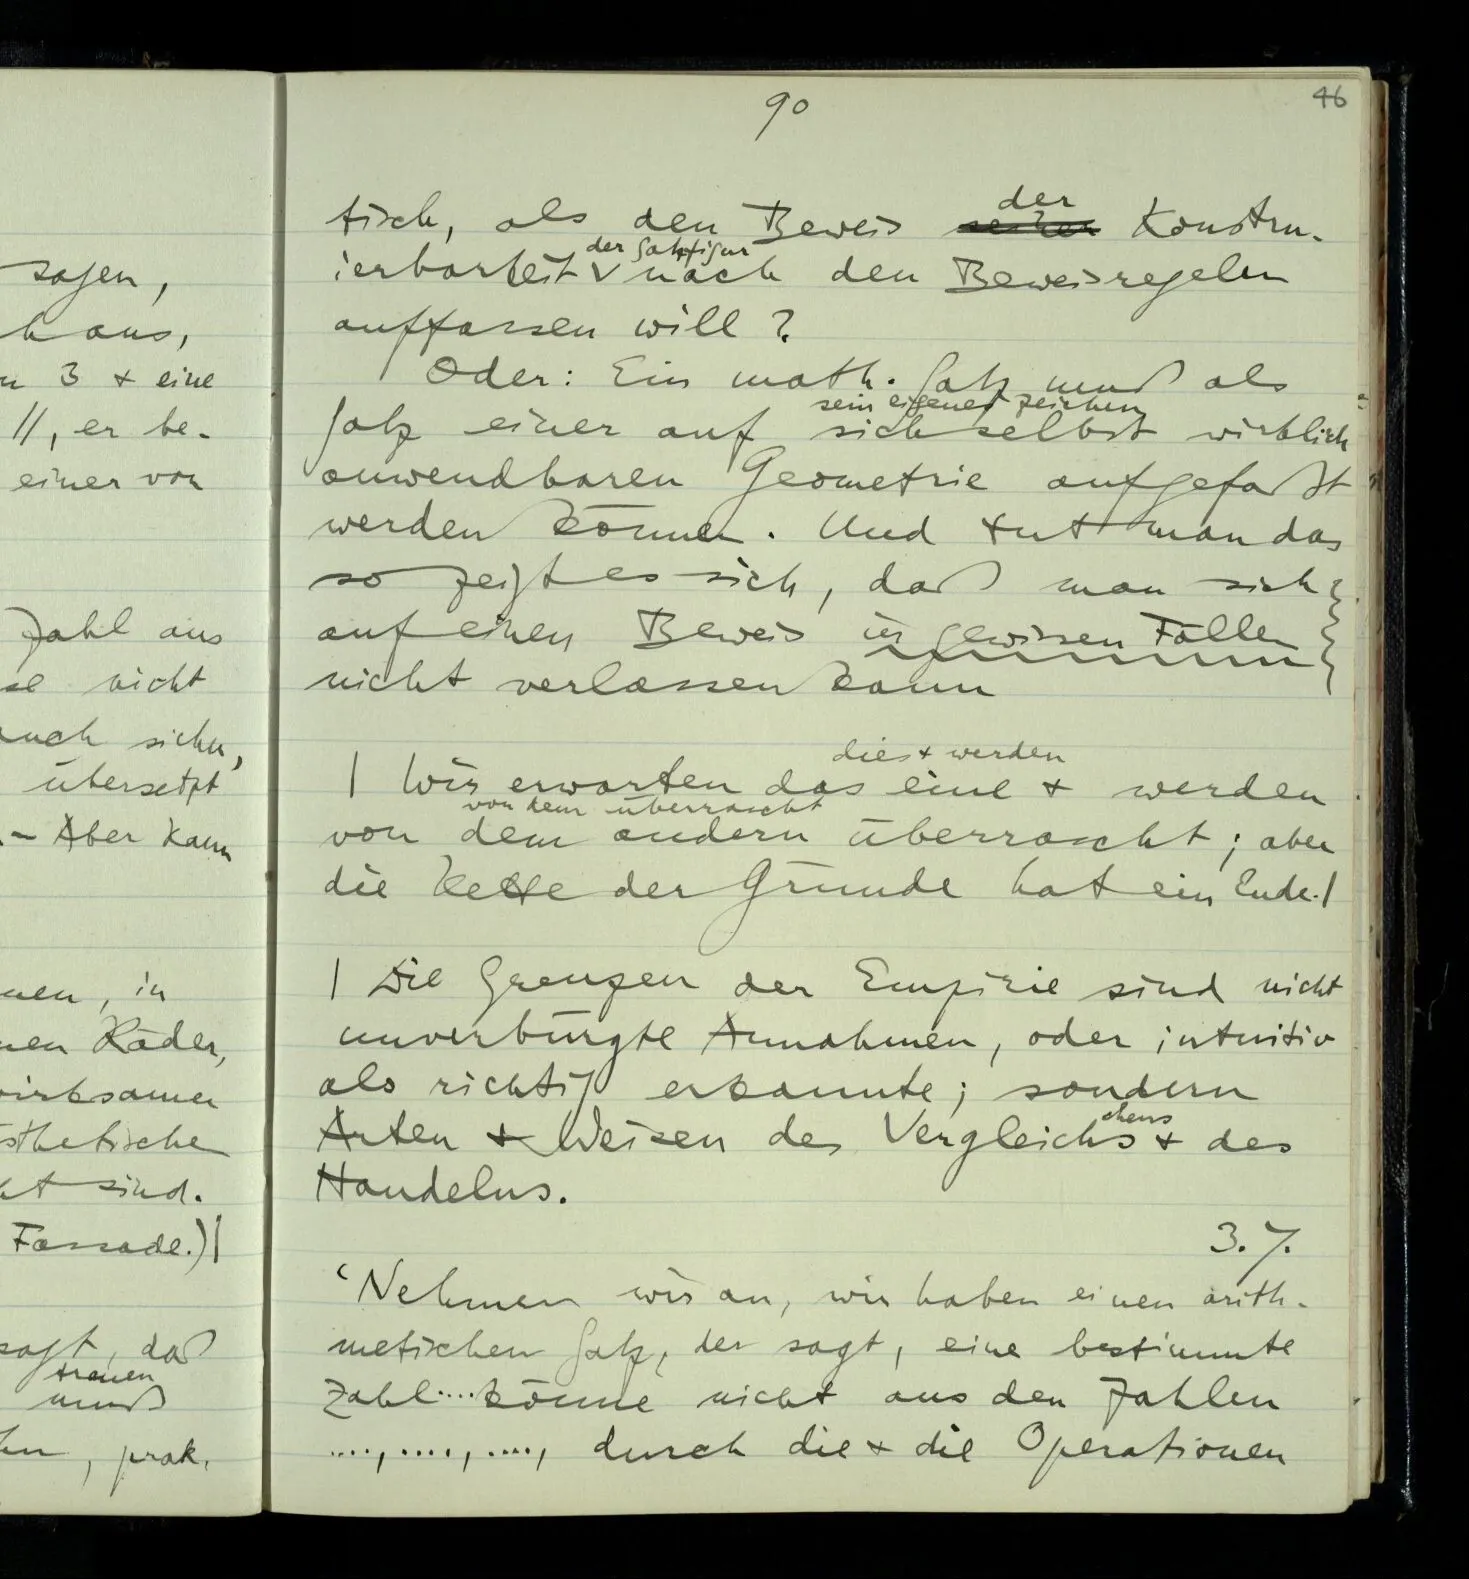 sagen,
h aus,
n 3 + eine
//, er be-
einer von
Zahl aus
se nicht
auch sicher,
übersetzt
. – Aber kann
nen, in
nen Räder,
wirksamer
sthetische
ht sind.
Fassade.)|
sagt, daß
trauen
muß
hn, prak-
90
46
der
tisch, als den Beweis seiner Konstru-
der Satzfigur
ierbarkeit ∨ nach den Beweisregeln
auffassen will?
Oder: Ein math. Satz muß als
sein eigenes Zeichen
Satz einer auf sich selbst wirklich
anwendbaren Geometrie aufgefaßt
werden können. Und tut man das
so zeigt es sich, daß man sich
auf einen Beweis in gewissen Fällen
nicht verlassen kann
dies + werden
| Wir erwarten das eine + werden
von dem überrascht
von dem andern überrascht; aber
die Kette der Gründe hat ein Ende.|
| Die Grenzen der Empirie sind nicht
unverbürgte Annahmen, oder intuitiv
als richtig erkannte; sondern
chens
Arten + Weisen des Vergleichs + des
Handelns.
3.7.
'Nehmen wir an, wir haben einen arith-
metischen Satz, der sagt, eine bestimmte
Zahl .... könne nicht aus den Zahlen
...., ...., ...., durch die + die Operationen